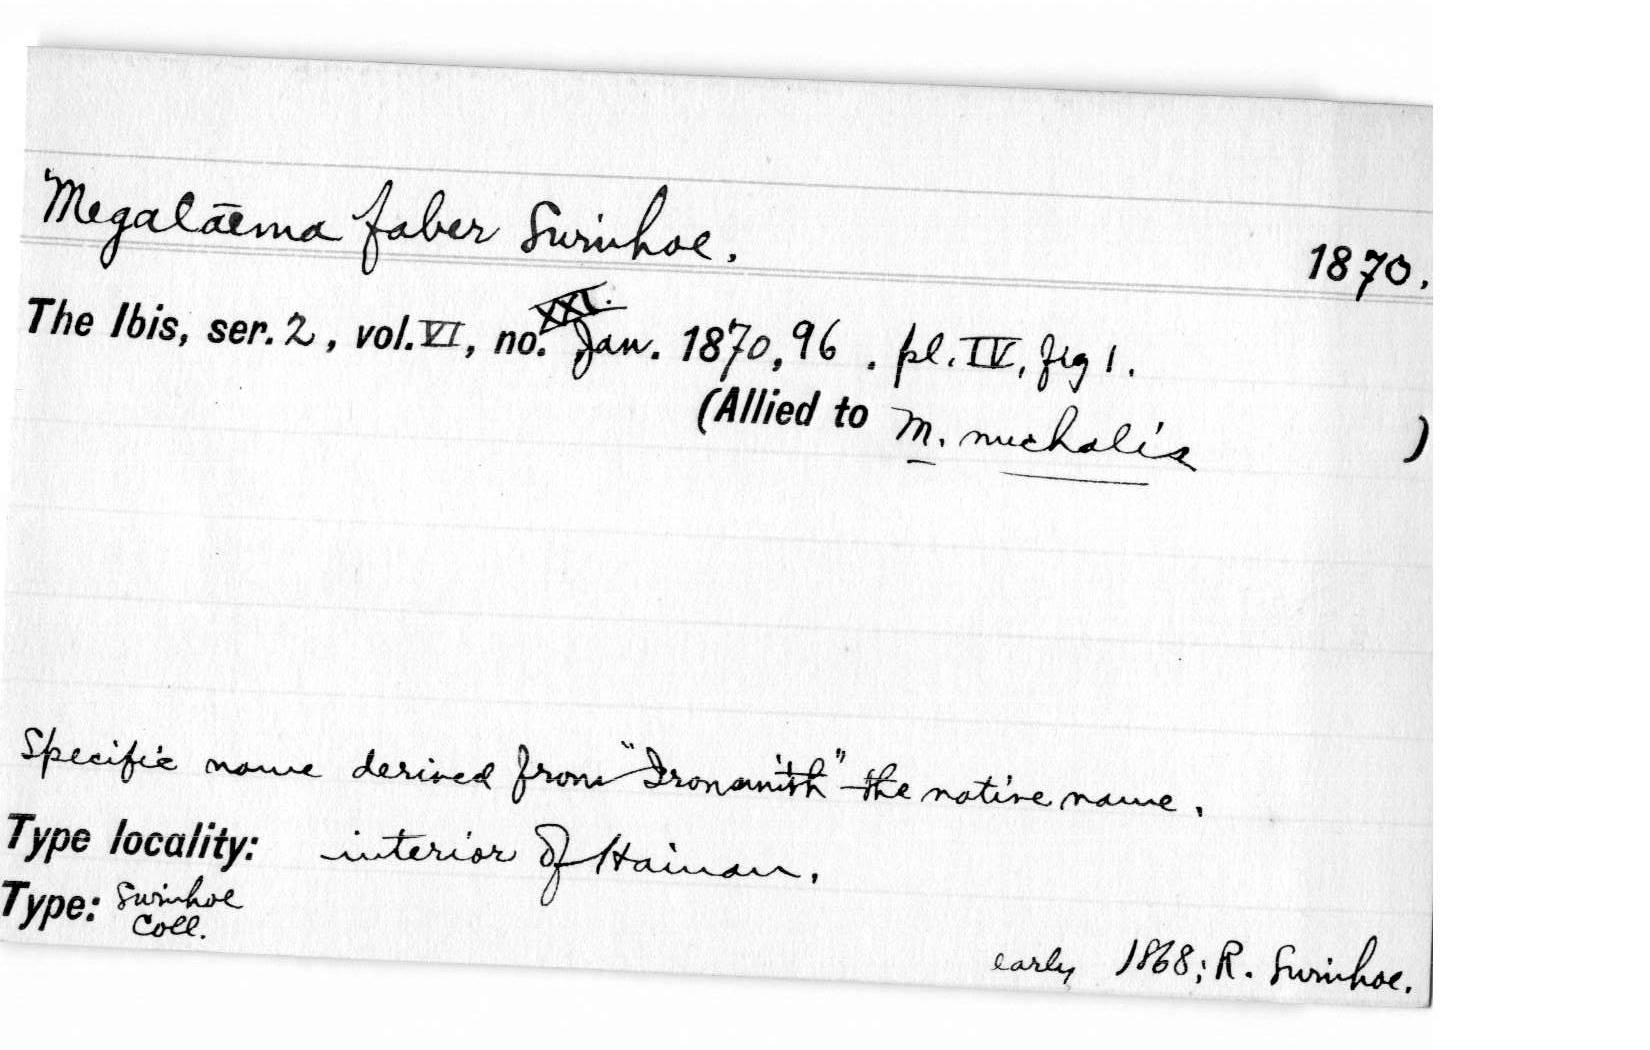 Megalāema faber Swinhoe.
1870.
The Ibis, ser. 2, vol. VI, no. XXI. Jan. 1870, 96 . pl. IV, fig 1.
(Allied to M. nuchalis )
Specific name derived from "Ironsmith" the native name.
Type locality: interior of Hainan.
Type: Swinhoe
Coll.
early 1868; R. Swinhoe.